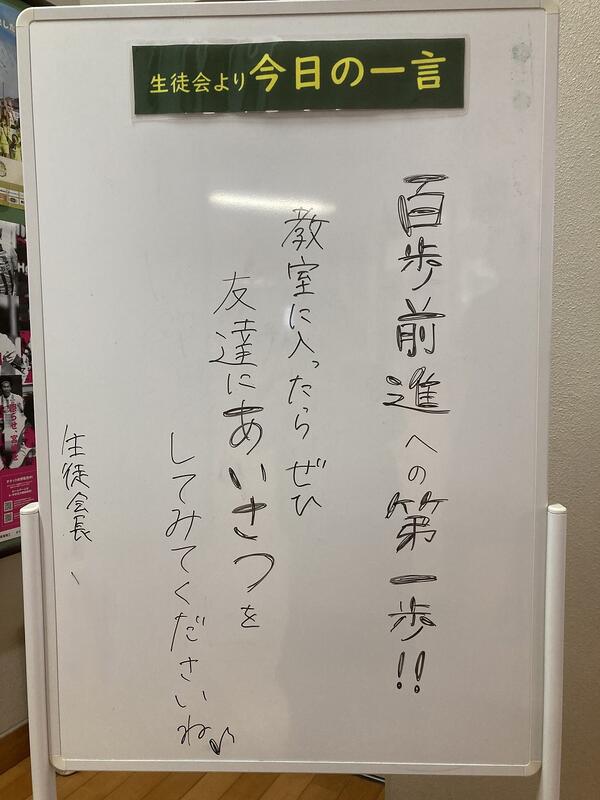 生徒会より今日の一言
百歩前進への第一歩!!
教室に入ったらぜひ
友達にあいさつを
してみてくださいね♪
生徒会長